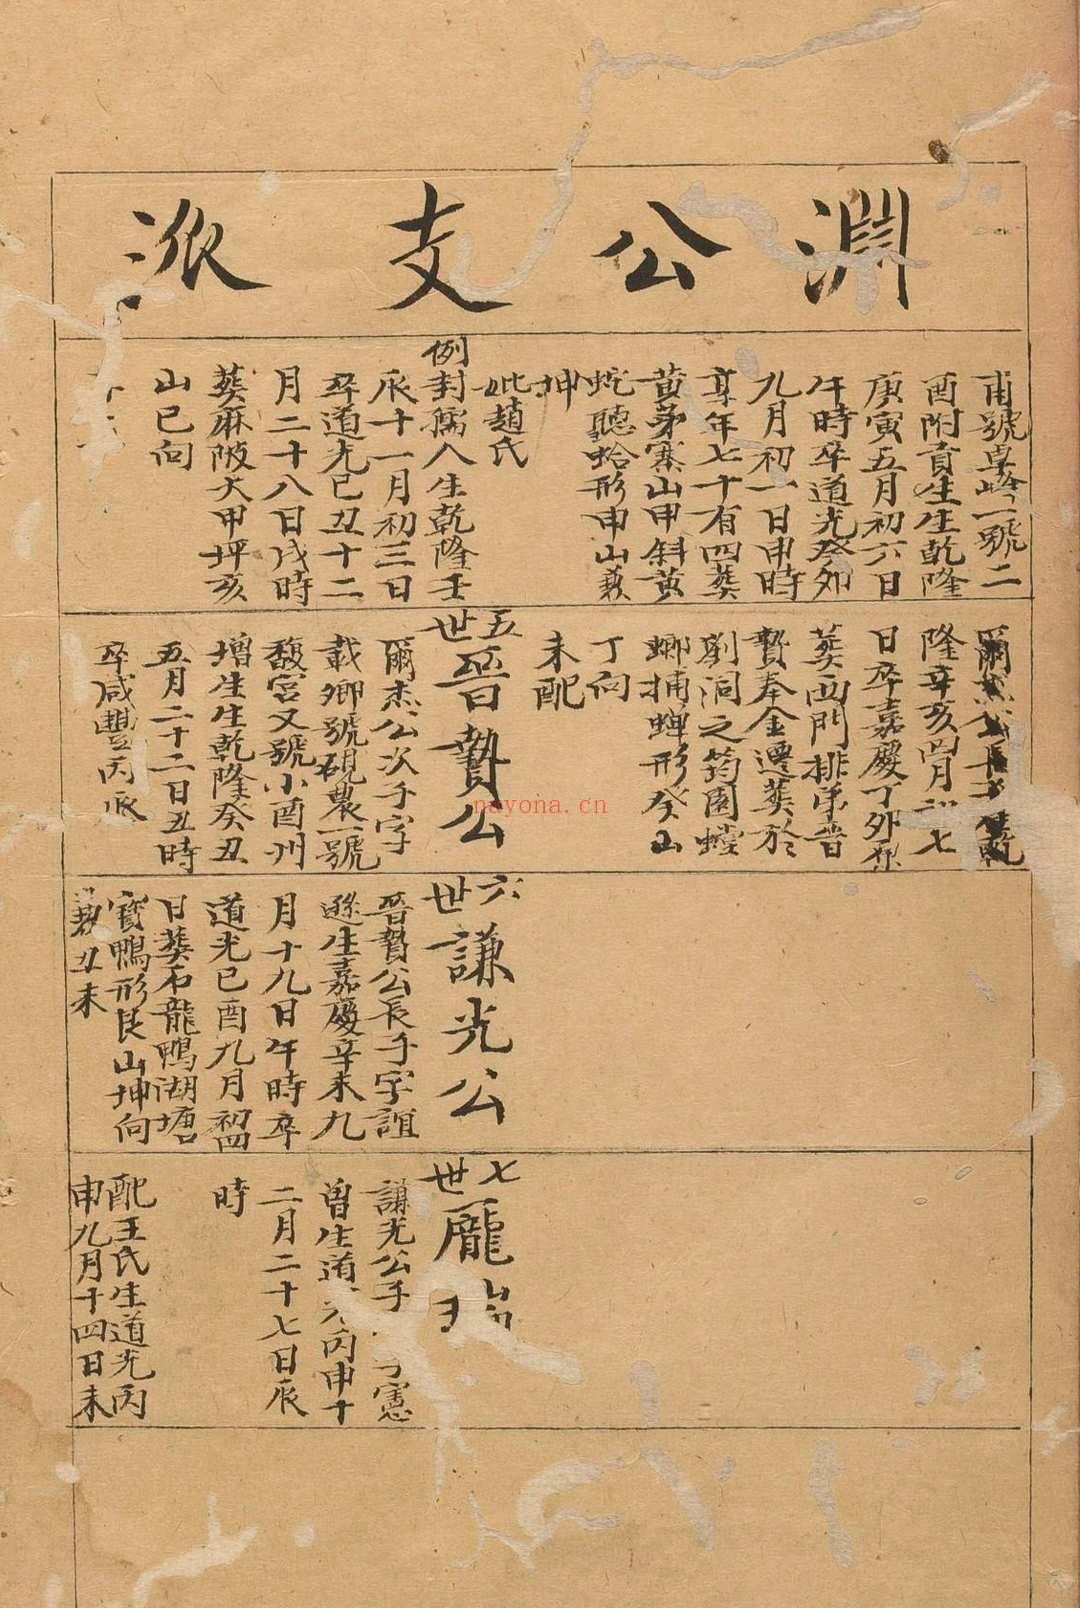 淵公支派
甫號卓峰一號二
酉附貢生生乾隆
庚寅五月初六日
午時卒道光癸卯
九月初一日申時
享年七十有四葬
黄茅寨山甲斜黄
蛇聽蛤形申山兼
坤
妣趙氏
例封孺人生乾隆壬
辰十一月初三日
卒道光己丑十二
月二十八日戌時
葬麻陂大甲坪亥
山巳向
爾杰公長子生乾
隆辛亥四月初七
日卒嘉慶丁卯
葬西門排弟晋
贄奉金遷葬於
劉洞之筠園螳
螂捕蟬形癸山
丁向
未配
五世
晋贄公
爾杰公次子字
載卿號硯農一號
馥宫又號小酉州
增生生乾隆癸丑
五月二十二日丑時
卒咸豐丙辰
六世
謙光公
晋贄公長子字誼
遜生嘉慶辛未九
月十九日午時卒
道光己酉九月初四
日葬石龍鴨湖塘
寳鴨形艮山坤向
兼丑未
七世
龐瑞
謙光公子字憲
曾生道光丙申十
二月二十七日辰
時
配王氏生道光丙
申九月十四日未
nayona.cn